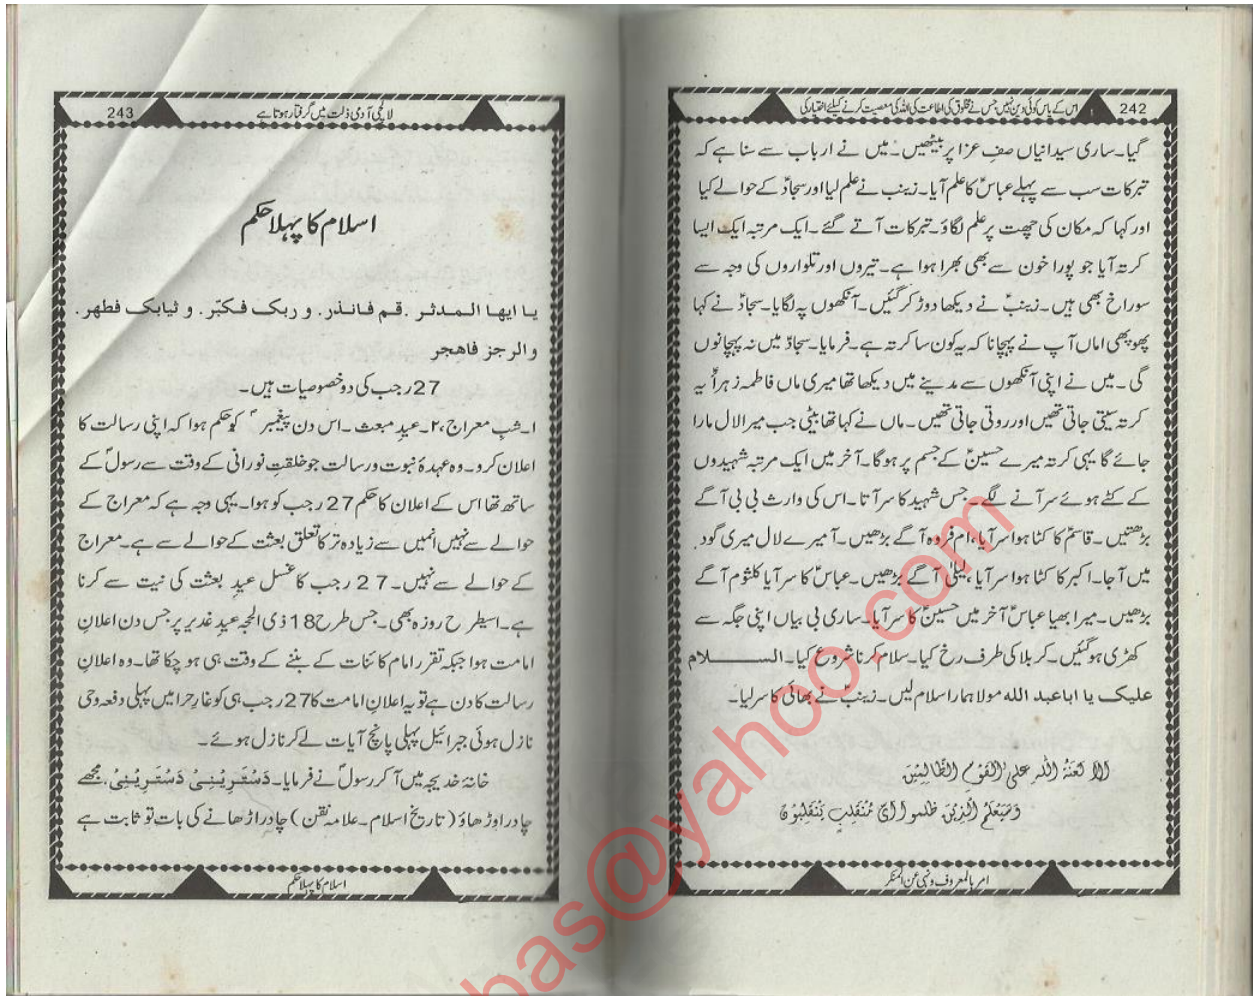 242
اس کے پاس کوئی دین نہیں جس نے مخلوق کی اطاعت کی اللہ کی معصیت کرنے کیلئے اختیار کی
گیا۔ ساری سیدانیاں صفِ عزا پر بیٹھیں۔ میں نے ارباب سے سنا ہے کہ
تبرکات سب سے پہلے عباسؑ کا علم آیا۔ زینب نے علم لیا اور سجادؑ کے حوالے کیا
اور کہا کہ مکان کی چھت پر علم لگاؤ۔ تبرکات آتے گئے۔ ایک مرتبہ ایک ایسا
کرتہ آیا جو پورا خون سے بھی بھرا ہوا ہے۔ تیروں اور تلواروں کی وجہ سے
سوراخ بھی ہیں۔ زینبؑ نے دیکھا دوڑ کر گئیں۔ آنکھوں پہ لگایا۔ سجادؑ نے کہا
پھوپھی اماں آپ نے پہچانا کہ یہ کون سا کرتہ ہے۔ فرمایا۔ سجادؑ میں نہ پہچانوں
گی۔ میں نے اپنی آنکھوں سے مدینے میں دیکھا تھا میری ماں فاطمہ زہراؑ یہ
کرتہ سیتی جاتی تھیں اور روتی جاتی تھیں۔ ماں نے کہا تھا بیٹی جب میرا لال مارا
جائے گا یہی کرتہ میرے حسینؑ کے جسم پر ہوگا۔ آخر میں ایک مرتبہ شہیدوں
کے کٹے ہوئے سر آنے لگے۔ جس شہید کا سر آتا۔ اس کی وارث بی بی آگے
بڑھتیں۔ قاسمؑ کا کٹا ہوا سر آیا، ام فروہ آگے بڑھیں۔ آ میرے لال میری گود
میں آ جا۔ اکبر کا کٹا ہوا سر آیا، لیلیٰ آگے بڑھیں۔ عباسؑ کا سر آیا کلثوم آگے
بڑھیں۔ میرا بھیا عباسؑ آخر میں حسینؑ کا سر آیا۔ ساری بی بیاں اپنی جگہ سے
کھڑی ہوگئیں۔ کربلا کی طرف رخ کیا۔ سلام کرنا شروع کیا۔ السلام
علیک یا ابا عبد الله مولا ہمارا سلام لیں۔ زینبؑ نے بھائی کا سر لیا۔
اَلَا لَعْنَةُ اللهِ عَلَى الْقَوْمِ الظَّالِمِيْنَ
وَسَيَعْلَمُ الَّذِيْنَ ظَلَمُوا اَىَّ مُنْقَلَبٍ يَنْقَلِبُوْنَ
امر بالمعروف ونہی عن المنکر
243
لالچی آدمی ذلت میں گرفتار ہوتا ہے
اسلام کا پہلا حکم
یا ایها المدثر. قم فانذر. و ربک فکبّر. و ثیابک فطهر.
والرجز فاهجر
27 رجب کی دو خصوصیات ہیں۔
۱۔ شبِ معراج، ۲۔ عیدِ مبعث۔ اس دن پیغمبرؐ کو حکم ہوا کہ اپنی رسالت کا
اعلان کرو۔ وہ عہدۂ نبوت و رسالت جو خلقتِ نورانی کے وقت سے رسولؐ کے
ساتھ تھا اس کے اعلان کا حکم 27 رجب کو ہوا۔ یہی وجہ ہے کہ معراج کے
حوالے سے نہیں انمیں سے زیادہ تر کا تعلق بعثت کے حوالے سے ہے۔ معراج
کے حوالے سے نہیں۔ 27 رجب کا غسل عیدِ بعثت کی نیت سے کرنا
ہے۔ اسیطرح روزہ بھی۔ جس طرح 18 ذی الحجہ عیدِ غدیر پر جس دن اعلانِ
امامت ہوا جبکہ تقرر امام کائنات کے بننے کے وقت ہی ہو چکا تھا۔ وہ اعلانِ
رسالت کا دن ہے تو یہ اعلانِ امامت کا 27 رجب ہی کو غارِ حرا میں پہلی دفعہ وحی
نازل ہوئی جبرائیل پہلی پانچ آیات لے کر نازل ہوئے۔
خانۂ خدیجہ میں آ کر رسولؐ نے فرمایا۔ دَسْتَرِیْنِیْ دَسْتَرِیْنِیْ. مجھے
چادر اوڑھاؤ (تاریخ اسلام۔ علامہ نقن) چادر اڑھانے کی بات تو ثابت ہے
اسلام کا پہلا حکم
bas@yahoo.com